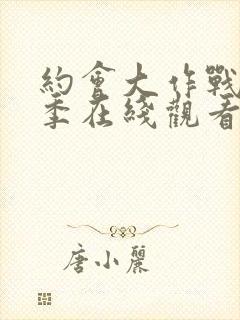 約會大作戰
季在綫觀看
唐小麗